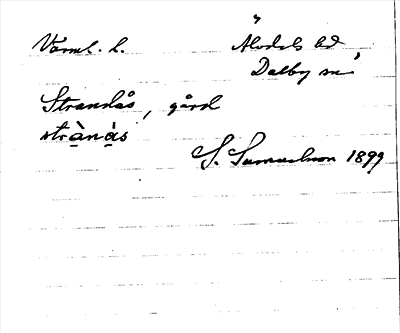 Värml. l. Älvdals hd
Dalby sn
Strandås, gård
strànàs
S. Samuelsson 1899